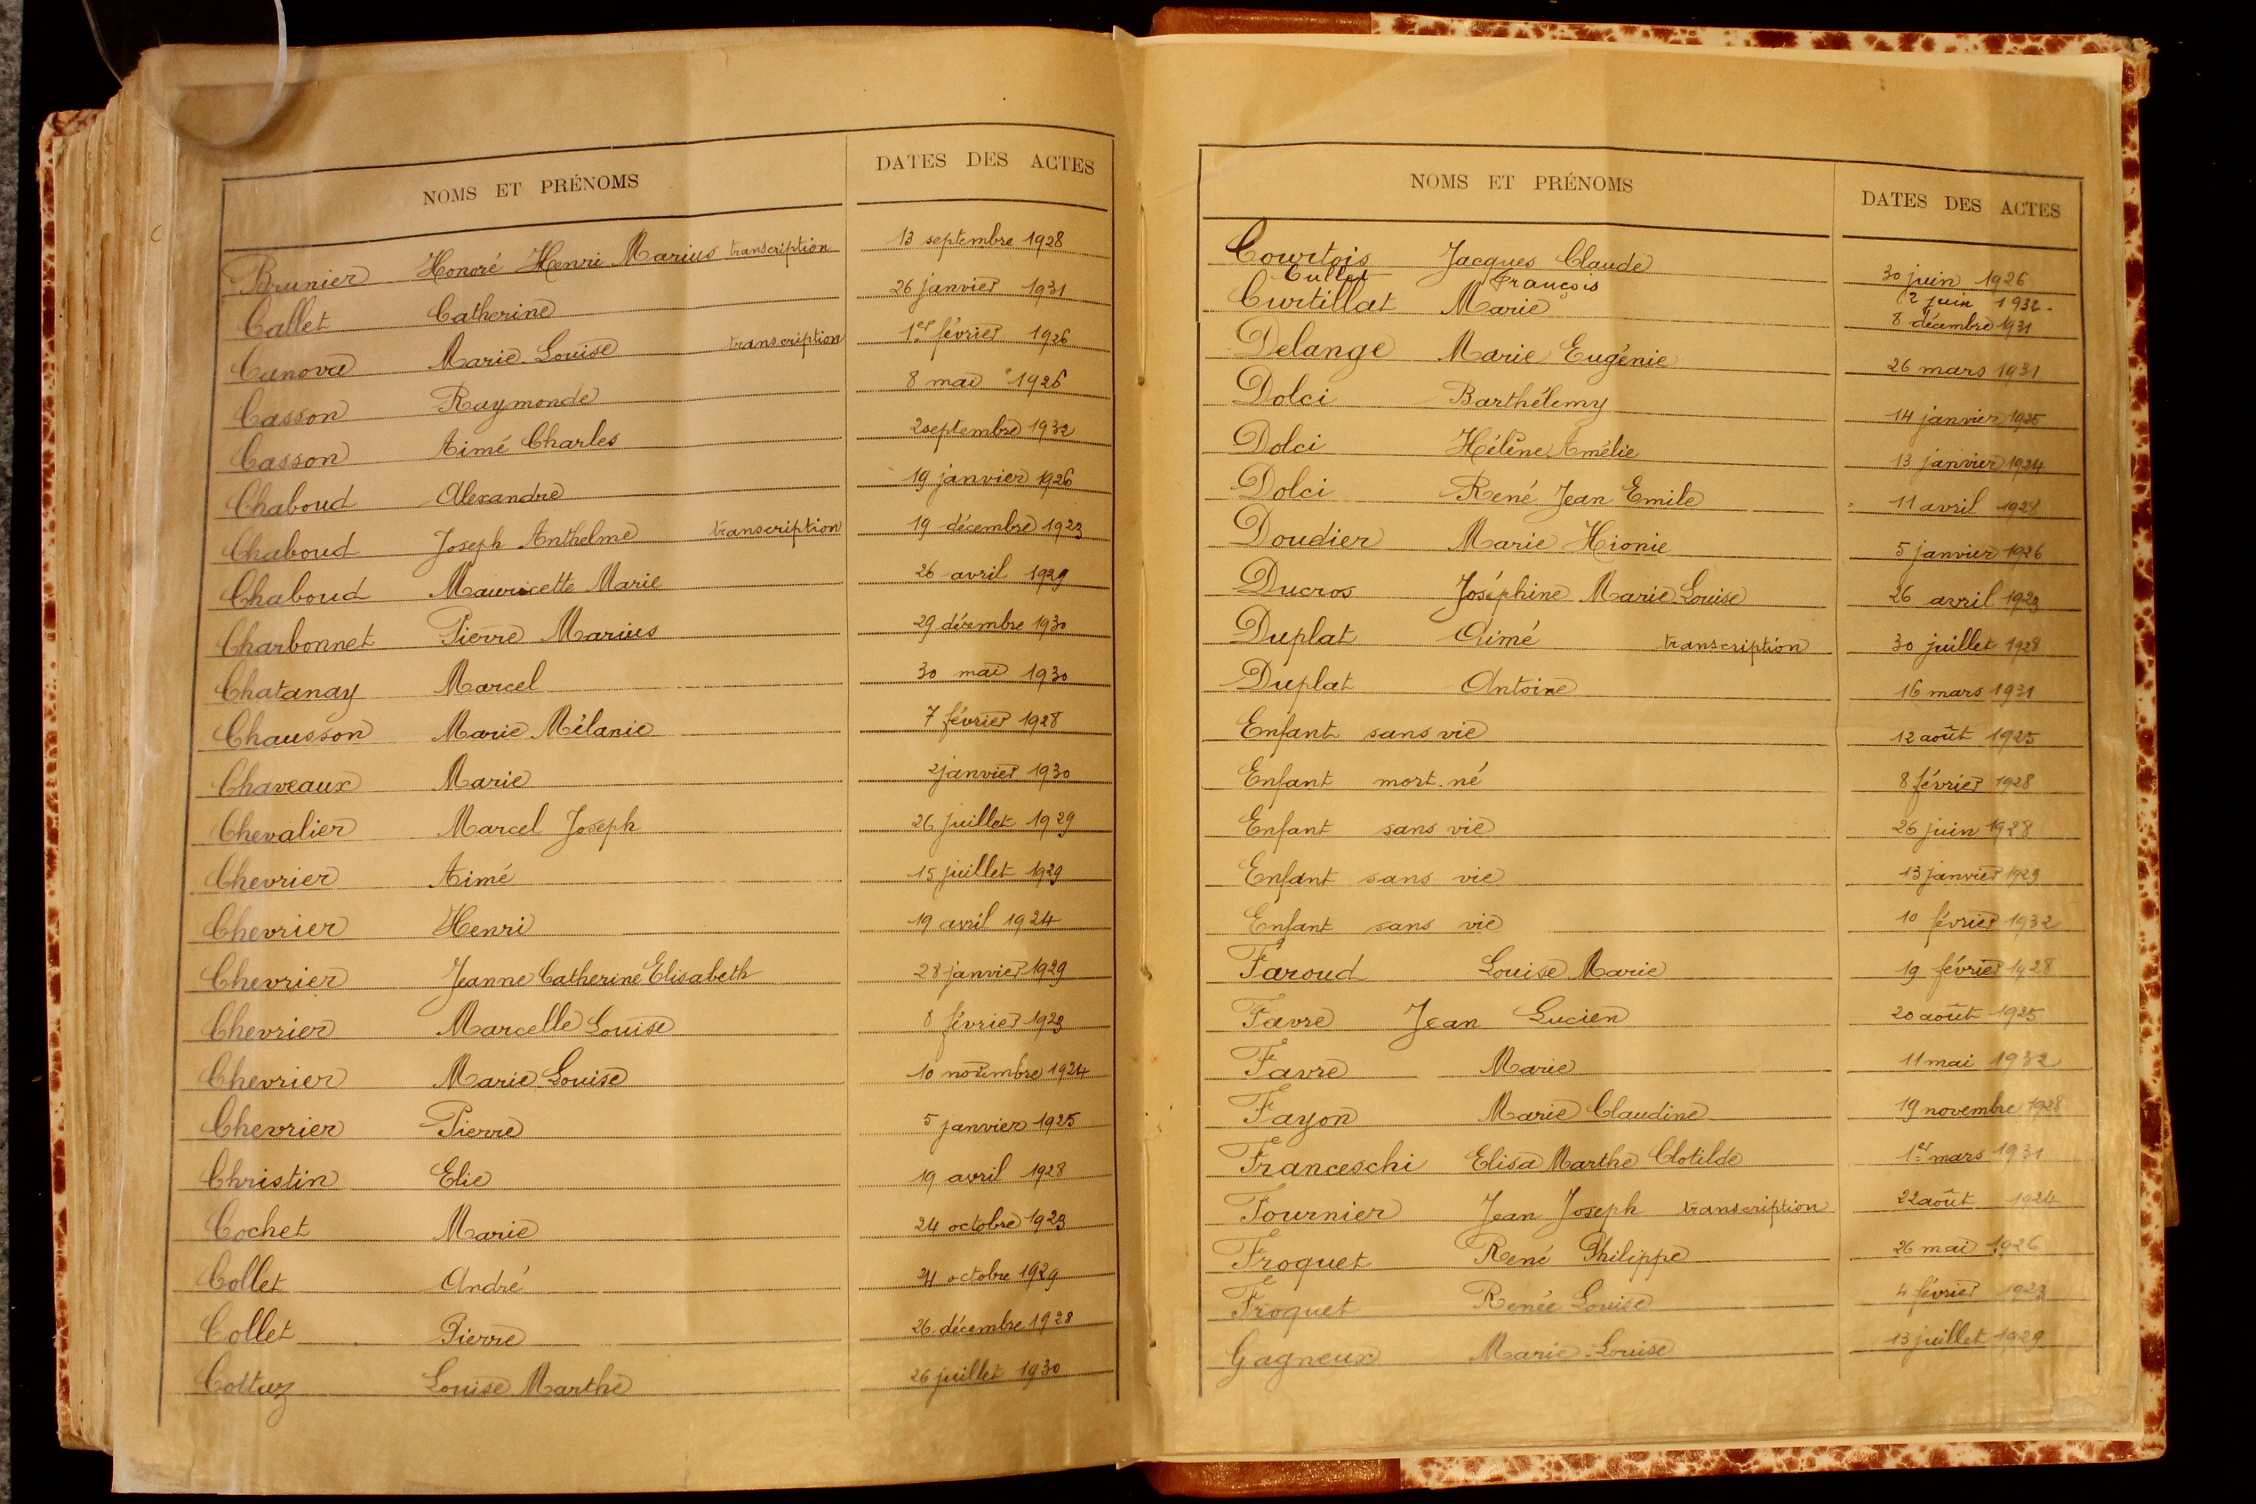 NOMS ET PRÉNOMS DATES DES ACTES
Brunier Honoré Henri Marius transcription 13 septembre 1928
Callet Catherine 26 janvier 1931
Canova Marie Louise transcription 1er février 1926
Casson Raymonde 8 mai 1926
Casson Aimé Charles 2 septembre 1932
Chaboud Alexandre 19 janvier 1926
Chaboud Joseph Anthelme transcription 19 décembre 1923
Chaboud Mauricette Marie 26 avril 1929
Charbonnet Pierre Marius 29 décembre 1930
Chatanay Marcel 30 mai 1930
Chausson Marie Mélanie 7 février 1928
Chaveaux Marie 2 janvier 1930
Chevalier Marcel Joseph 26 juillet 1929
Chevrier Aimé 15 juillet 1929
Chevrier Henri 19 avril 1924
Chevrier Jeanne Catherine Elisabeth 28 janvier 1929
Chevrier Marcelle Louise 8 février 1923
Chevrier Marie Louise 10 novembre 1924
Chevrier Pierre 5 janvier 1925
Christin Elie 19 avril 1928
Cochet Marie 24 octobre 1923
Collet André 24 octobre 1929
Collet Pierre 26 décembre 1928
Cottaz Louise Marthe 26 juillet 1930
NOMS ET PRÉNOMS DATES DES ACTES
Courtois Jacques Claude 30 juin 1926
Cullet François 2 juin 1932
Curtillat Marie 8 décembre 1931
Delange Marie Eugénie 26 mars 1931
Dolci Barthélemy 14 janvier 1925
Dolci Hélène Amélie 13 janvier 1924
Dolci René Jean Emile 11 avril 1928
Doudier Marie Hionie 5 janvier 1926
Ducros Joséphine Marie Louise 26 avril 1923
Duplat Aimé transcription 30 juillet 1928
Duplat Antoine 16 mars 1931
Enfant sans vie 12 août 1925
Enfant mort-né 8 février 1928
Enfant sans vie 26 juin 1928
Enfant sans vie 13 janvier 1929
Enfant sans vie 10 février 1932
Faroud Louise Marie 19 février 1928
Favre Jean Lucien 20 août 1925
Favre Marie 11 mai 1932
Fayon Marie Claudine 19 novembre 1928
Franceschi Elisa Marthe Clotilde 1er mars 1931
Fournier Jean Joseph transcription 22 août 1924
Froquet René Philippe 26 mai 1926
Froquet Renée Louise 4 février 1923
Gagneux Marie-Louise 13 juillet 1929